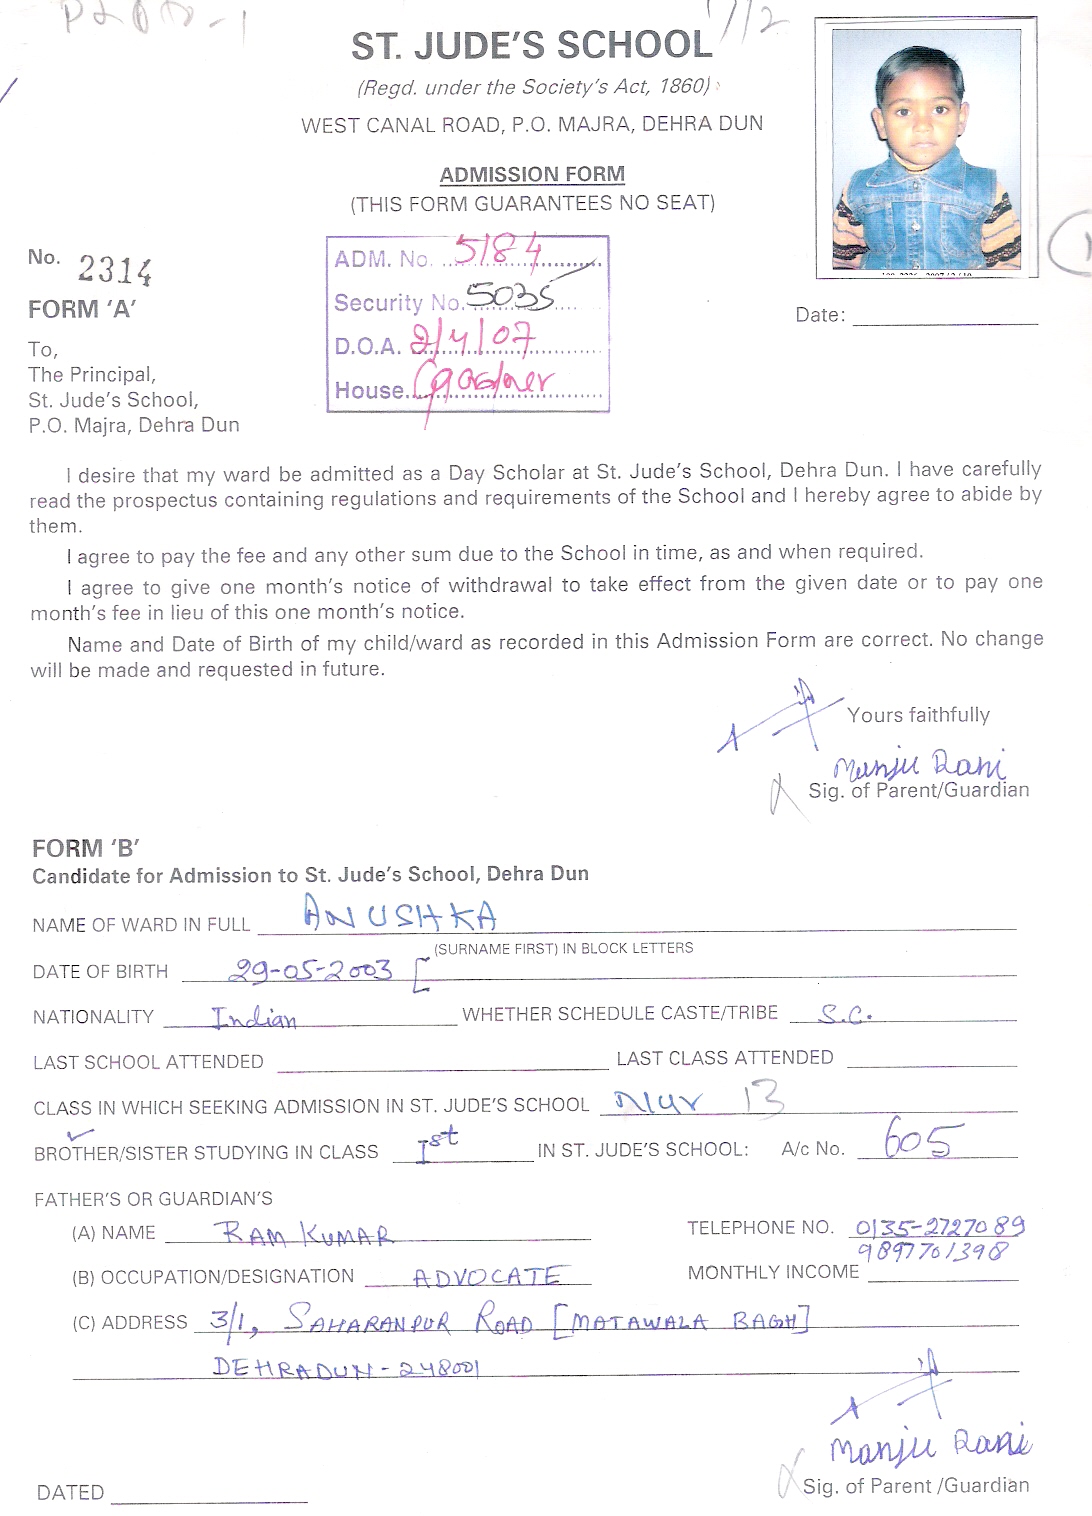 ST. JUDE'S SCHOOL
(Regd. under the Society's Act, 1860)
WEST CANAL ROAD, P.O. MAJRA, DEHRA DUN
ADMISSION FORM
(THIS FORM GUARANTEES NO SEAT)
No. 2314
ADM. No. 5184
Security No. 5035
D.O.A. 2/4/07
House. Gardner
FORM 'A'
Date:
To,
The Principal,
St. Jude's School,
P.O. Majra, Dehra Dun
I desire that my ward be admitted as a Day Scholar at St. Jude's School, Dehra Dun. I have carefully
read the prospectus containing regulations and requirements of the School and I hereby agree to abide by
them.
I agree to pay the fee and any other sum due to the School in time, as and when required.
I agree to give one month's notice of withdrawal to take effect from the given date or to pay one
month's fee in lieu of this one month's notice.
Name and Date of Birth of my child/ward as recorded in this Admission Form are correct. No change
will be made and requested in future.
Yours faithfully
Manju Rani
Sig. of Parent/Guardian
FORM 'B'
Candidate for Admission to St. Jude's School, Dehra Dun
NAME OF WARD IN FULL ANUSHKA
(SURNAME FIRST) IN BLOCK LETTERS
DATE OF BIRTH 29-05-2003
NATIONALITY Indian WHETHER SCHEDULE CASTE/TRIBE S.C.
LAST SCHOOL ATTENDED LAST CLASS ATTENDED
CLASS IN WHICH SEEKING ADMISSION IN ST. JUDE'S SCHOOL Nur 13
BROTHER/SISTER STUDYING IN CLASS Ist IN ST. JUDE'S SCHOOL: A/c No. 605
FATHER'S OR GUARDIAN'S
(A) NAME RAM KUMAR TELEPHONE NO. 0135-2727089
9897701398
(B) OCCUPATION/DESIGNATION ADVOCATE MONTHLY INCOME
(C) ADDRESS 3/1, SAHARANPUR ROAD [MATAWALA BAGH]
DEHRADUN-248001
Manju Rani
Sig. of Parent /Guardian
DATED